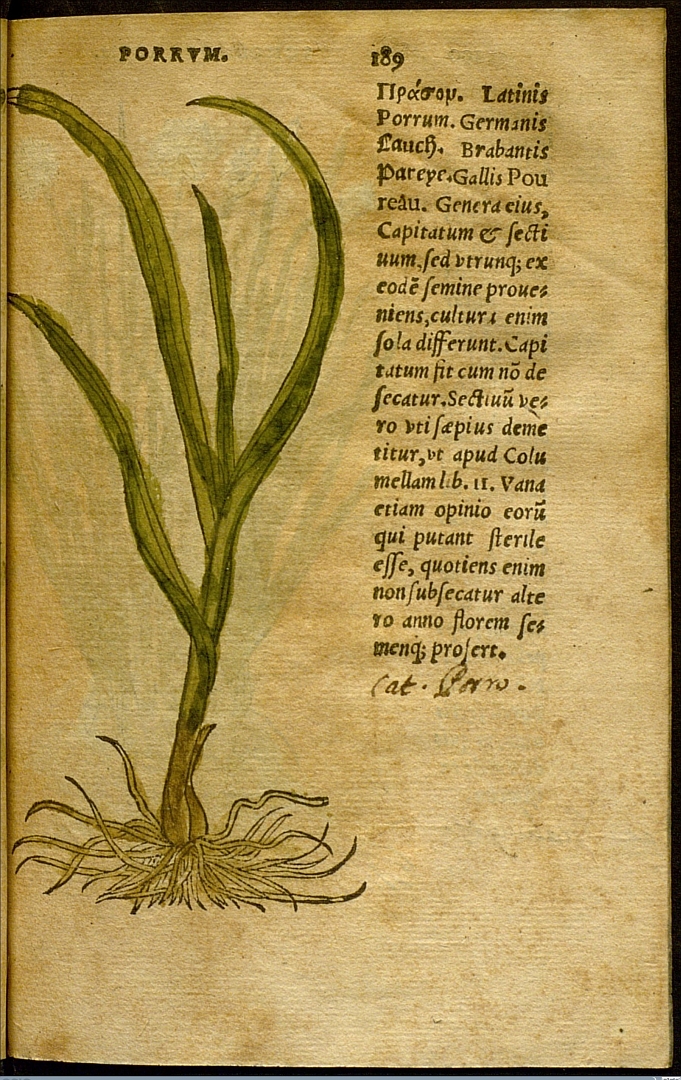 PORRVM.
189
Πράσον. Latinis
Porrum. Germanis
Lauch. Brabantis
Pareye. Gallis Pou
reáu. Genera eius,
Capitatum & ſecti
uum, ſed vtrunq; ex
eodē ſemine proue⸗
niens, cultura enim
ſola differunt. Capi
tatum fit cum nō de
ſecatur. Sectiuū ve⸗
ro vti ſæpius deme
titur, vt apud Colu
mellam lib. 11. Vana
etiam opinio eorū
qui putant ſterile
eſſe, quotiens enim
non ſubſecatur alte
ro anno florem ſe⸗
menq; profert.
Cat. Porro.